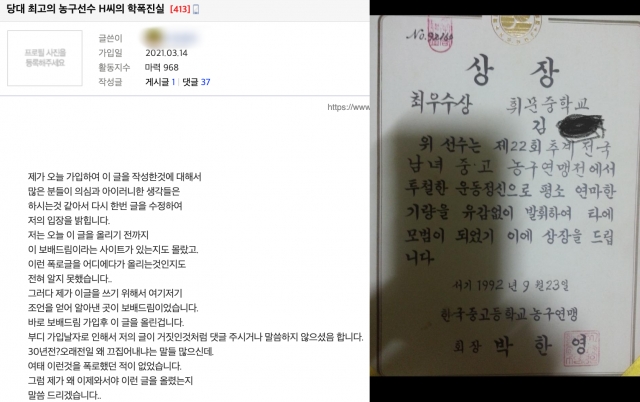 당대 최고의 농구선수 H씨의 학폭진실 [413]
프로필 사진을
등록해주세요
글쓴이
가입일 2021.03.14
활동지수 마력 968
작성글 게시글 1 댓글 37
https://www
제가 오늘 가입하여 이 글을 작성한것에 대해서
많은 분들이 의심과 아이러니한 생각들은
하시는것 같아서 다시 한번 글을 수정하여
저의 입장을 밝힙니다.
저는 오늘 이 글을 올리기 전까지
이 보배드림이라는 사이트가 있는지도 몰랐고.
이런 폭로글을 어디에다가 올리는것인지도
전혀 알지 못했습니다..
그러다 제가 이글을 쓰기 위해서 여기저기
조언을 얻어 알아낸 곳이 보배드림이었습니다.
바로 보배드림 가입후 이 글을 올린겁니다.
부디 가입날자로 인해서 저의 글이 거짓인것처럼 댓글 주시거나 말씀하지 않으셨음 합니다.
30년전?오래전일 왜 끄집어내냐는 말들 많으신데.
여태 이런것을 폭로했던 적이 없었습니다.
그럼 제가 왜 이제와서야 이런 글을 올렸는지
말씀 드리겠습니다..
상장
최우수상 휘문중학교
김
위 선수는 제22회 추계 전국
남녀 중·고 농구연맹전에서
투철한 운동정신으로 평소 연마한
기량을 유감없이 발휘하여 타에
모범이 되었기 이에 상장을 드립
니다.
서기 1992년 9월 23일
한국중고등학교농구연맹
회장 박한영